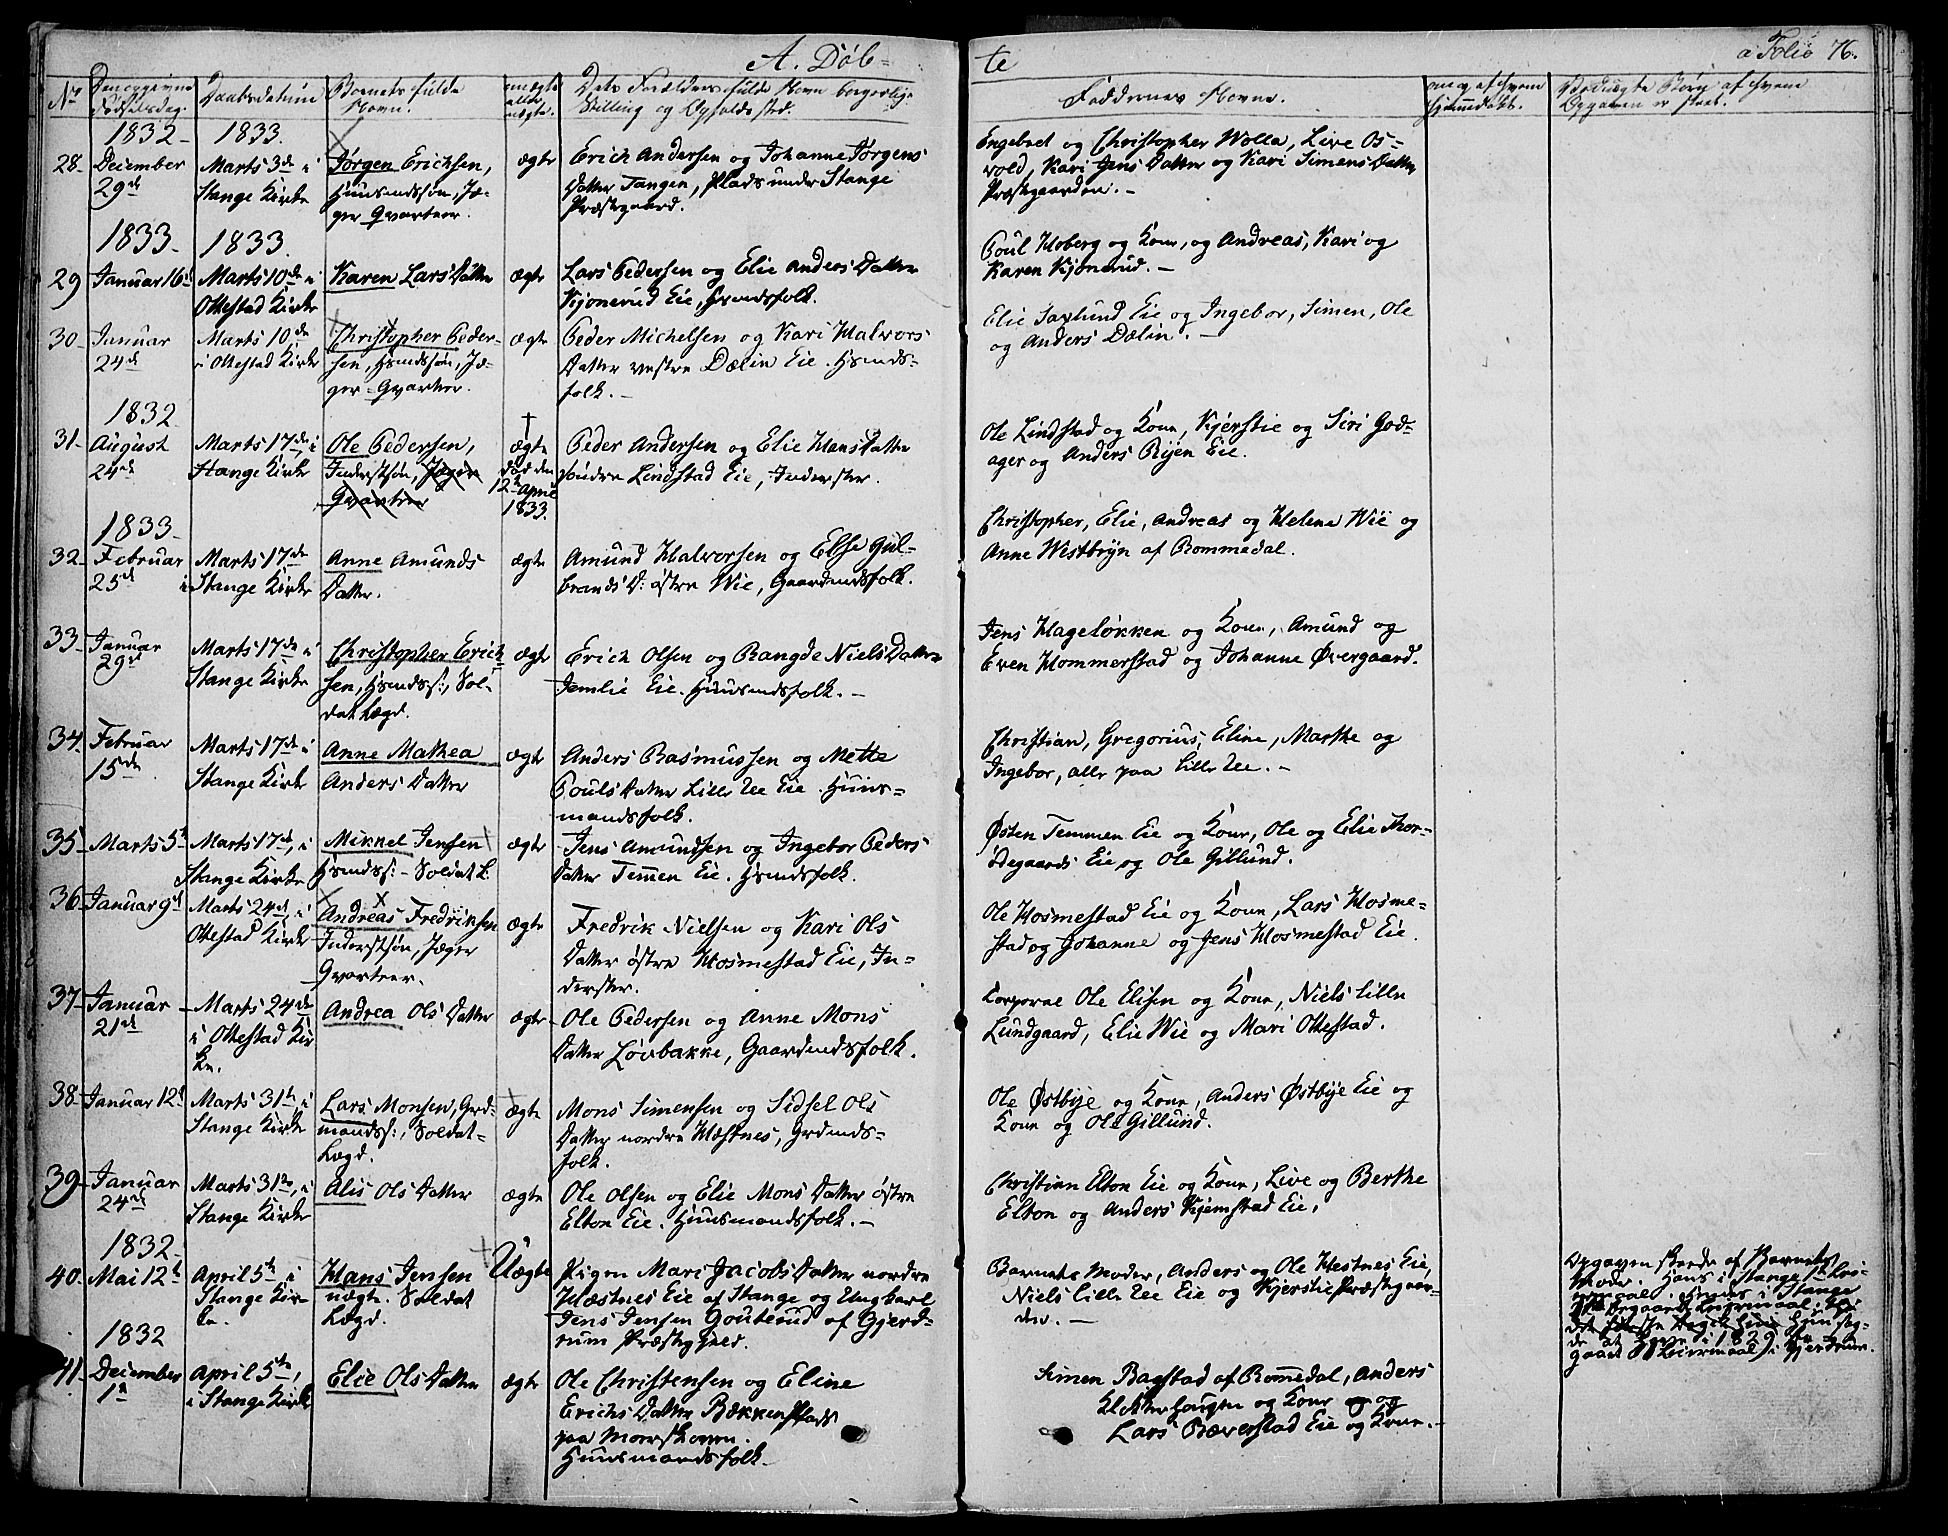 A. Døb=
te
a Folio 76.
No
Den opgivne Fødselsdag.
Daabsdatum
Barnets fulde Navn.
om ægte eller uægte.
Dets Forældres fulde Navn borgerlige Stilling og Opholdssted.
Faddernes Navne.
om og af hvem hjemmedøbt.
1832-
1833.
28-
December 29de
Marts 3de i
Stange Kirke
Jørgen Erichsen,
Huusmandssøn, Jæ-
ger Qvarteer.
ægte
Erich Andersen og Johanne Jørgens
Datter Tangen, Plads under Stange
Præstegaard.
Engebret og Christopher Wolla, Live Os-
vold, Kari Jens Datter og Kari Simens Datter
Præstegaarden.-
1833-
1833.
29
Januar 16de
Marts 10de i
Ottestad Kirke
Karen Lars Datter
ægte
Lars Pedersen og Elie Anders Datter
Kjonerud Eie, Huusmandsfolk.
Poul Hoberg og Kone, og Andreas, Kari og
Karen Kjonerud.-
30-
Januar
24de
Marts 10de
i Ottestad Kirke
Christopher Peder-
sen, Hsmdssøn, Jæ-
ger-Qvarteer.
ægte
Peder Michelsen og Kari Halvors
Datter vestre Dælin Eie. Hsmds-
folk.-
Elie Saxlund Eie og Ingebor, Simen, Ole
og Anders Dælin.-
1832
31-
August
24de
Marts 17de, i
Stange Kirke
Ole Pedersen,
Inderstsøn, Jæger
Qvarteer
†
ægte
død den
12te April
1833.
Peder Andersen og Elie Hans Datter
søndre Lindstad Eie, Inderster.
Ole Lindstad og Kone, Kjerstie og Siri God-
ager og Anders Rijen Eie.
1833-
32-
Februar
25de
Marts 17de
i Stange Kirke
Anne Amunds
Datter.
ægte
Amund Halvorsen og Else Gul-
brands D: østre Wie, Gaardmdsfolk.
Christopher, Elie, Andreas og Helene Wie og
Anne Westbÿn af Rommedal.
33-
Januar
29de
Marts 17de i
Stange Kirke
Christopher Erich-
sen, Hsmdss:, Sol-
dat Lægd.
ægte
Erich Olsen og Rangde Niels Datter
Jemlie Eie. Huusmdsfolk.-
Jens Hageløkken og Kone, Amund og
Even Hommerstad og Johanne Øvergaard.
34-
Februar
15de
Marts 17de i
Stange Kirke
Anne Mathea
Anders Datter
ægte
Anders Rasmussen og Mette
Pouls Datter Lille Ree Eie. Huus-
mandsfolk.
Christian, Gregorius, Eline, Marthe og
Ingebor, alle paa lille Ree.-
35-
Marts 5te
Marts 17de, i
Stange Kirke
Mikkel Jensen
Hsmdss:- Soldat L.
ægte
Jens Amundsen og Ingebor Peders
Datter Temmen Eie. Hsmdsfolk.
Østen Temmen Eie og Kone, Ole og Elie Thor-
ødegaards Eie og Ole Gillund.
36-
Januar 9de
Marts 24de, i
Ottestad Kirke
Andreas Fredriksen
Inderstsøn, Jæger
Qvarteer.
ægte
Fredrik Nielsen og Kari Ols
Datter østre Hosmestad Eie, In-
derster.
Ole Hosmestad Eie og Kone, Lars Hosme-
stad og Johanne og Jens Hosmestad Eie.
37-
Januar
21de
Marts 24de
i Ottestad Kir
ke.
Andrea Ols Datter
ægte
Ole Pedersen og Anne Mons
Datter Løvbakke, Gaardmdsfolk.
Corporal Ole Elisen og Kone, Niels lille
Lundgaard, Elie Wie og Mari Ottestad.
38-
Januar 12te
Marts 31te, i
Stange Kirke
Lars Monsen, Grd-
mandss:, Soldat-
Lægd.
ægte
Mons Simensen og Sidsel Ols
Datter nordre Hæstnes, Grdmds-
folk.
Ole Østbÿe og Kone, Anders Østbÿe Eie og
Kone og Ole Gillund.
39-
Januar
24de
Marts 31te, i
Stange Kirke
Alis Ols Datter
ægte
Ole Olsen og Elie Mons Datter østre
Elton Eie. Huusmandsfolk.-
Christian Elton Eie og Kone, Live og Berthe
Elton og Anders Kjemstad Eie,
1832-
40-
Mai 12te
April 5te, i
Stange Kir-
ke.
Hans Jensen
uægte. Soldat
Lægd.
Uægte
Pigen Mari Jacobs Datter nordre
Hæstnes Eie af Stange og Ungkarl
Jens Jensen Gouterud af Gjerd-
rum Præstegjeld.
Barnets Moder, Anders og Ole Hestnes Eie,
Niels lille Ree Eie og Kjerstie Præstegaar-
den.-
Opgaven skeede af Barnets
Moder. Hans i Stange
1832
41-
December
1te
April 5te,
i Stange Kirke
Elie Ols Datter
ægte
Ole Christensen og Eline
Erichs Datter Bækken Plads
paa Moreskoven.
Huusmandsfolk-
Simen Bagstad af Romedal, Anders
Klokkerhaugen og Kone og
Lars Bæverstad Eie og Kone.-